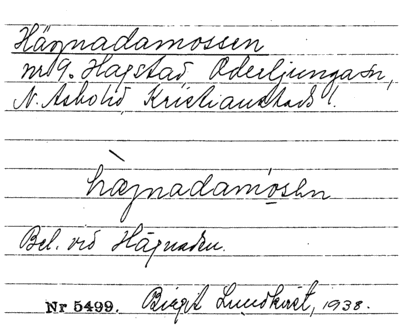 Hägnadamossen
nr 9. Hagstad Oderljunga sn,
N. Åsbo hd, Kristianstads l.
hægnadamosen
Bel. vid Hägnaden.
Nr 5499. Birgit Lundkvist, 1938.